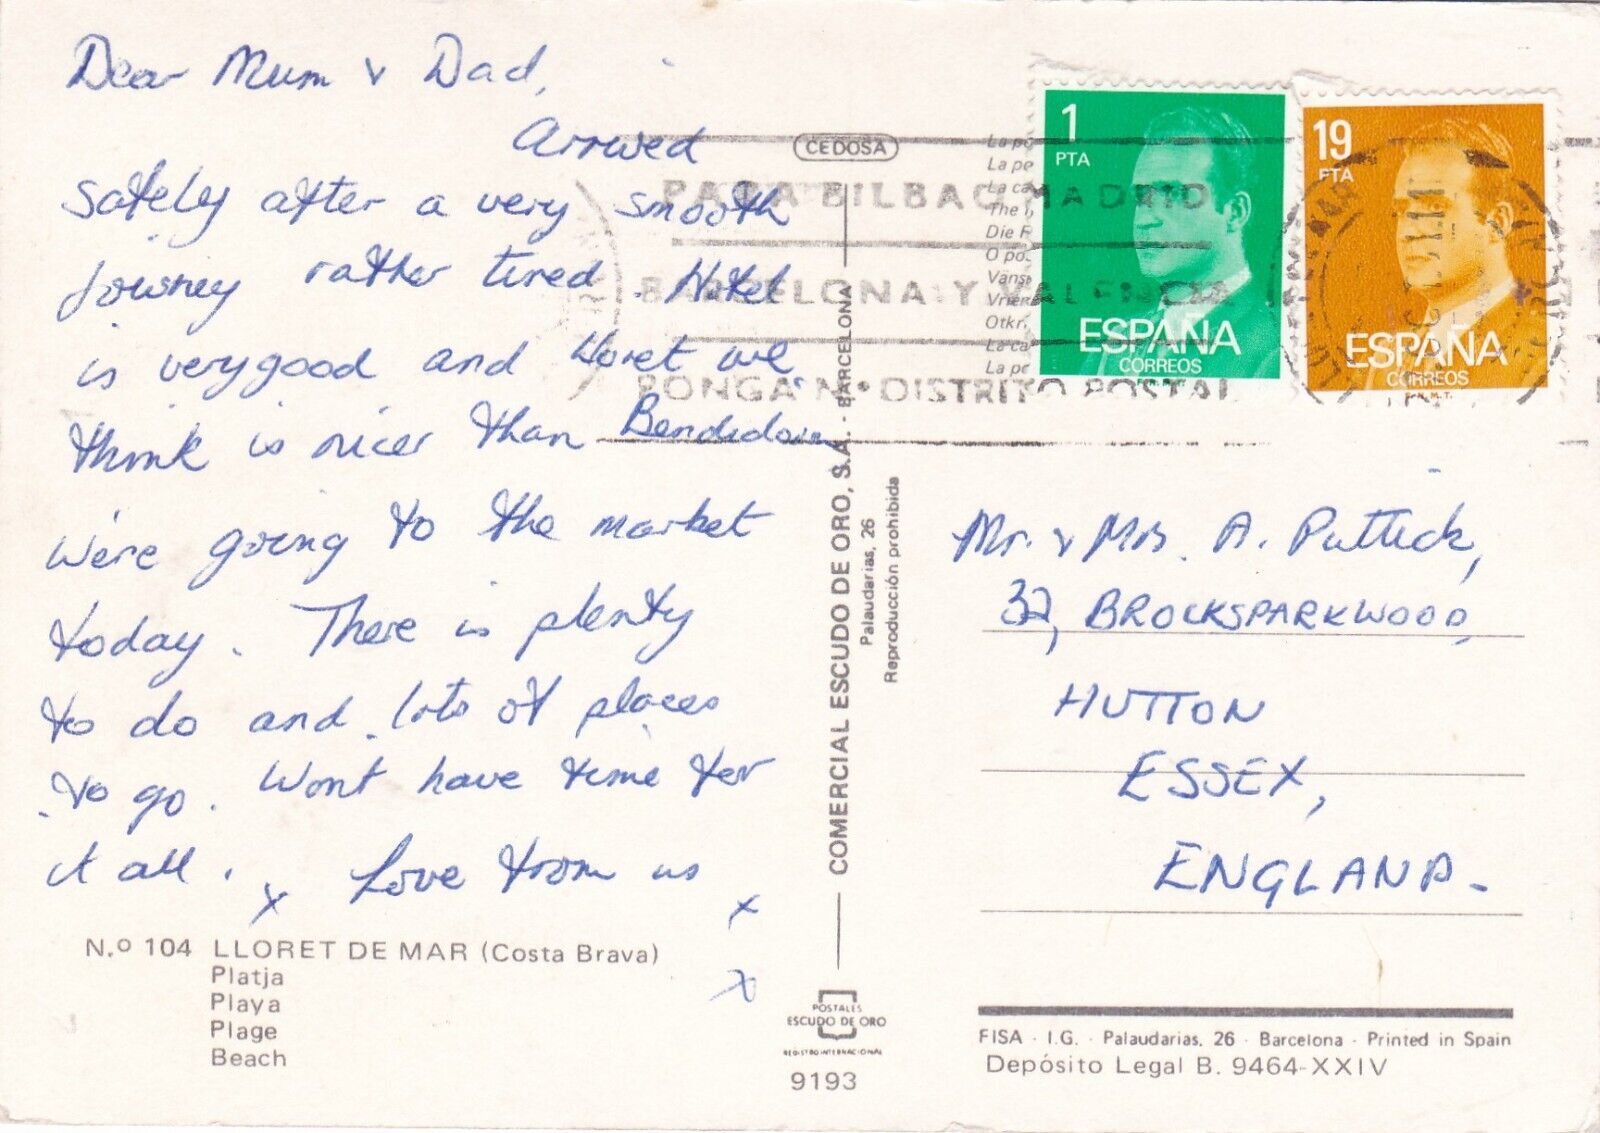 Dear Mum v Dad,
Arrived
safely after a very smooth
journey rather tired. Hotel
is very good and lloret we
think is nicer than Bendidorm
We're going to the market
today. There is plenty
to do and lots of places
to go. Wont have time for
it all. x Love from us x
x
N.º 104 LLORET DE MAR (Costa Brava)
Platja
Playa
Plage
Beach
CEDOSA
PARA BILBAO, MADRID
BARCELONA Y VALENCIA
PONGA N.º DISTRITO POSTAL
La
La pe
La ca
The
Die F
O po
Väns
Vrie
Otkr
La ca
La pe
1
PTA
ESPAÑA
CORREOS
19
PTA
ESPAÑA
CORREOS
F.N.M.T.
COMERCIAL ESCUDO DE ORO, S.A. - BARCELONA
Palaudarias, 26
Reproducción prohibida
Mr. v Mrs. A. Puttick,
32, BROCKSPARKWOOD,
HUTTON
ESSEX,
ENGLAND.
POSTALES
ESCUDO DE ORO
REGISTRO INTERNACIONAL
9193
FISA - I.G. - Palaudarias, 26 - Barcelona - Printed in Spain
Depósito Legal B. 9464-XXIV